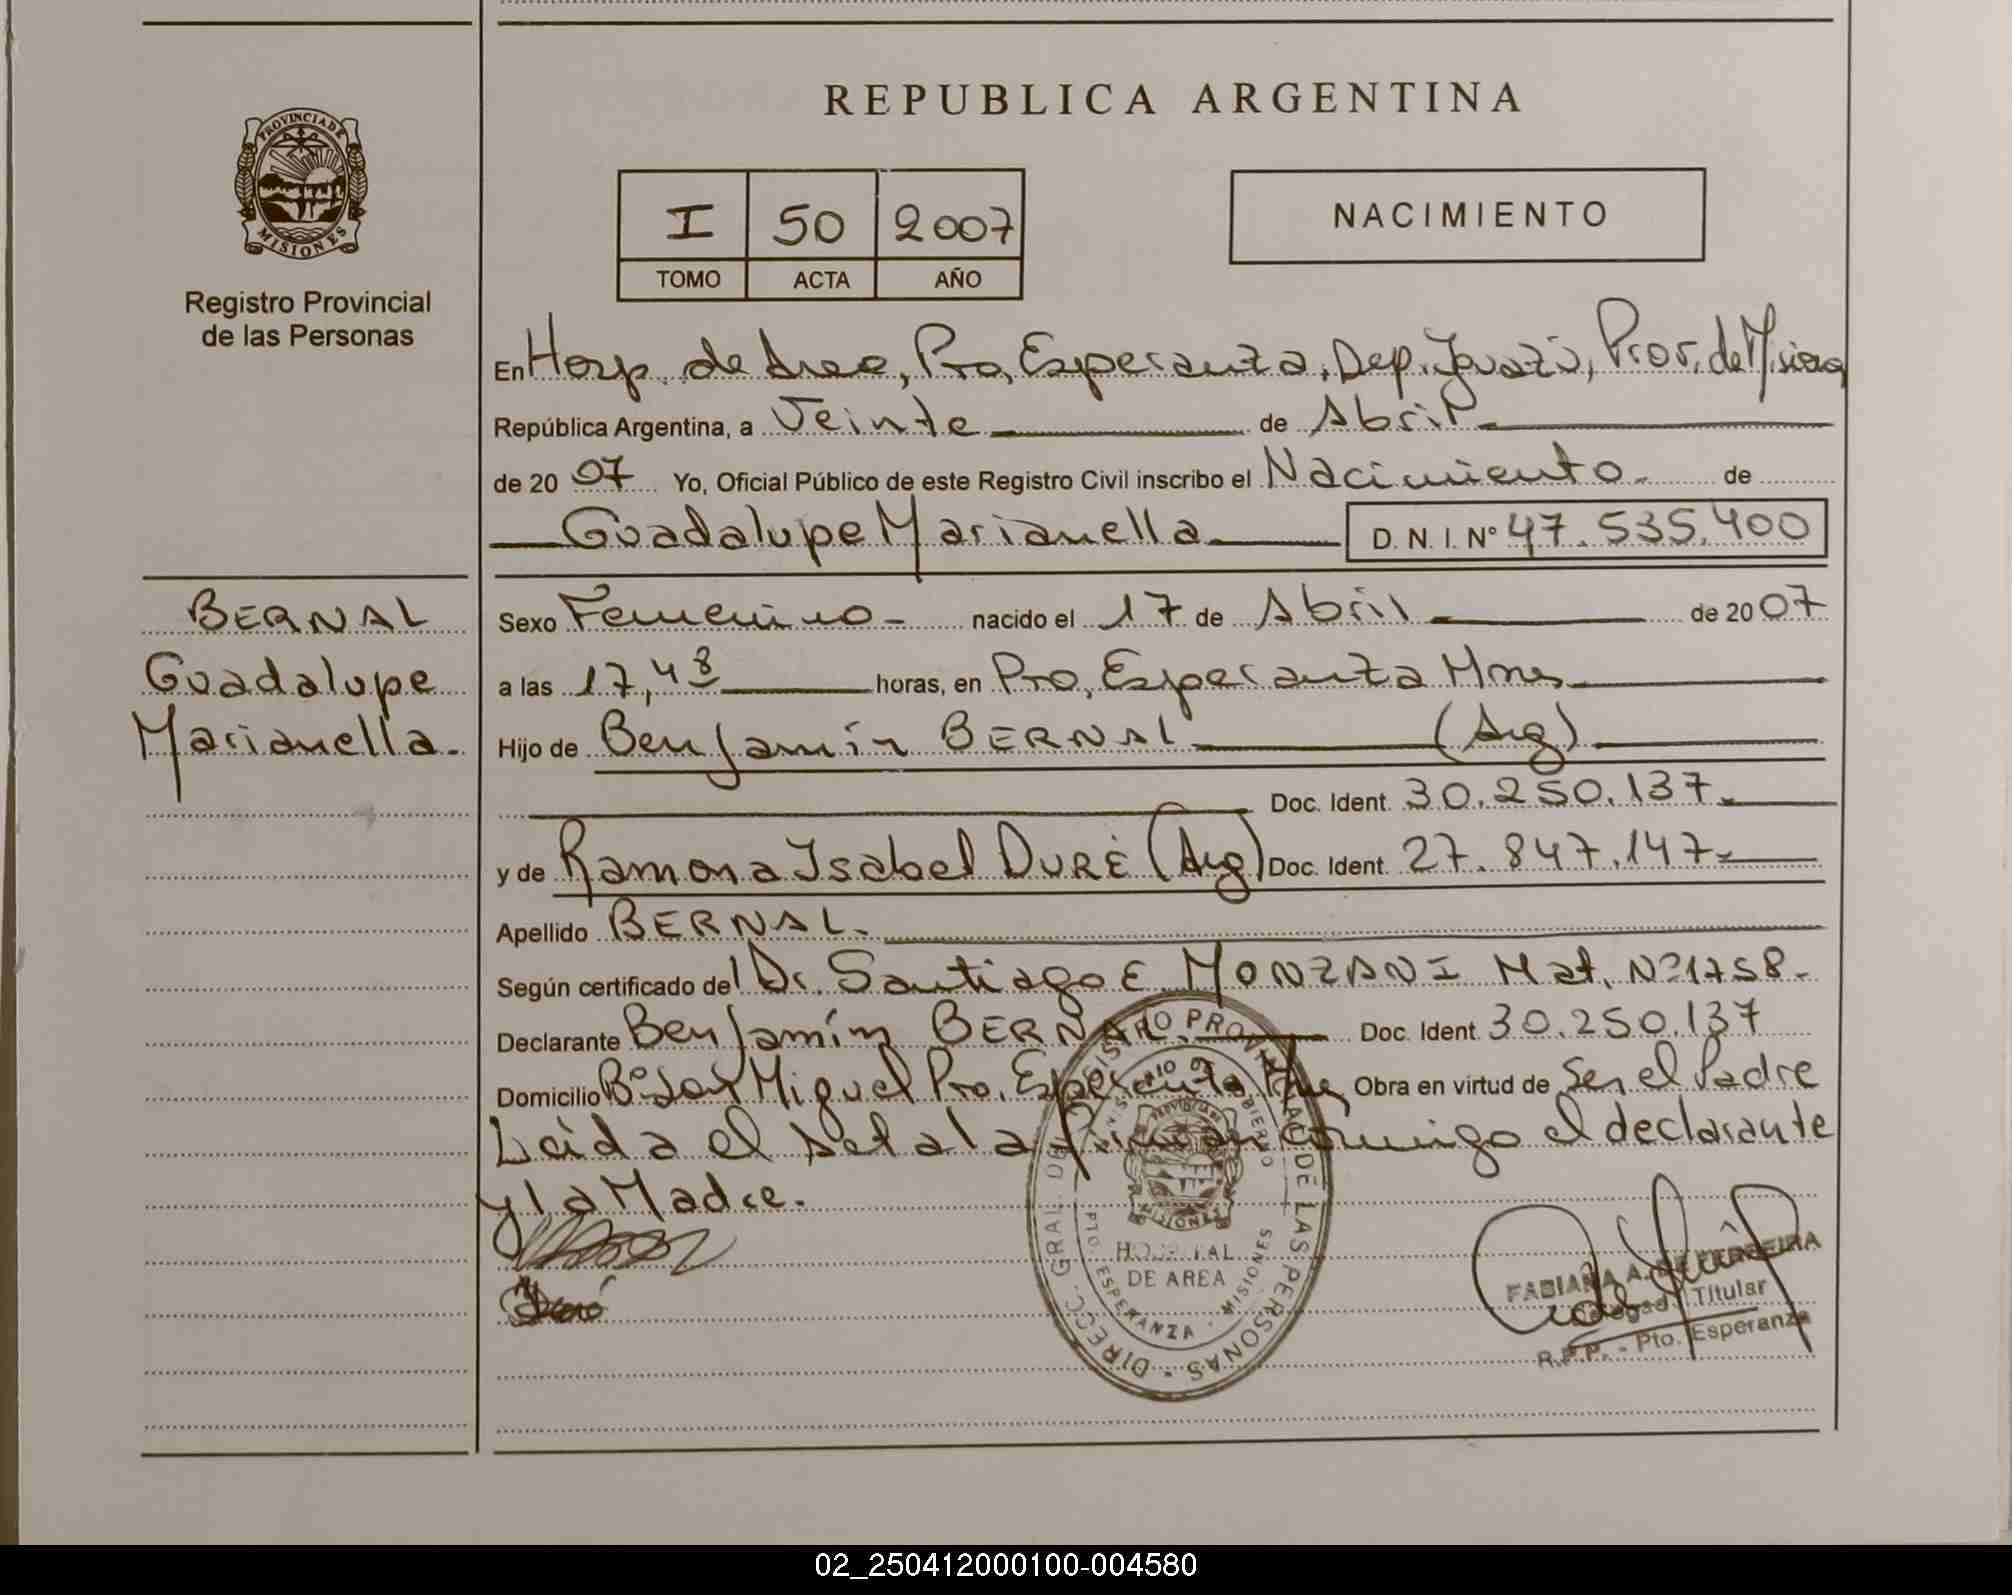 REPUBLICA ARGENTINA
PROVINCIA DE
MISIONES
Registro Provincial
de las Personas
I 50 2007
TOMO ACTA AÑO
NACIMIENTO
En Hosp. de Area, Pto, Esperanza, Dep. Iguazú, Prov. de Misiones
República Argentina, a Veinte de Abril
de 2007 Yo, Oficial Público de este Registro Civil inscribo el Nacimiento. de
Guadalupe Marianella D. N. I. Nº 47.535.400
BERNAL
Guadalupe
Marianella.
Sexo Femenino nacido el 17 de Abril de 2007
a las 17,48 horas, en Pto, Esperanza Mnes
Hijo de Benjamín BERNAL (Arg)
Doc. Ident. 30.250.137
y de Ramona Isabel DURÉ (Arg) Doc. Ident. 27.847.147
Apellido BERNAL
Según certificado del Dr. Santiago E MONZANI Mat. Nº 1758
Declarante Benjamín BERNAL Doc. Ident. 30.250.137
Domicilio Bº San Miguel Pto. Esperanza Obra en virtud de Ser el Padre
Leída el Acta la firman conmigo el declarante
y la Madre.
DIRECC. GRAL. DEL REGISTRO PROVINCIAL DE LAS PERSONAS
MINISTERIO DE GOBIERNO
PROVINCIA DE
MISIONES
HOSPITAL
DE AREA
PTO. ESPERANZA - MISIONES
FABIANA A. FERREIRA
Delegada Titular
R.P.P. - Pto. Esperanza
02_250412000100-004580